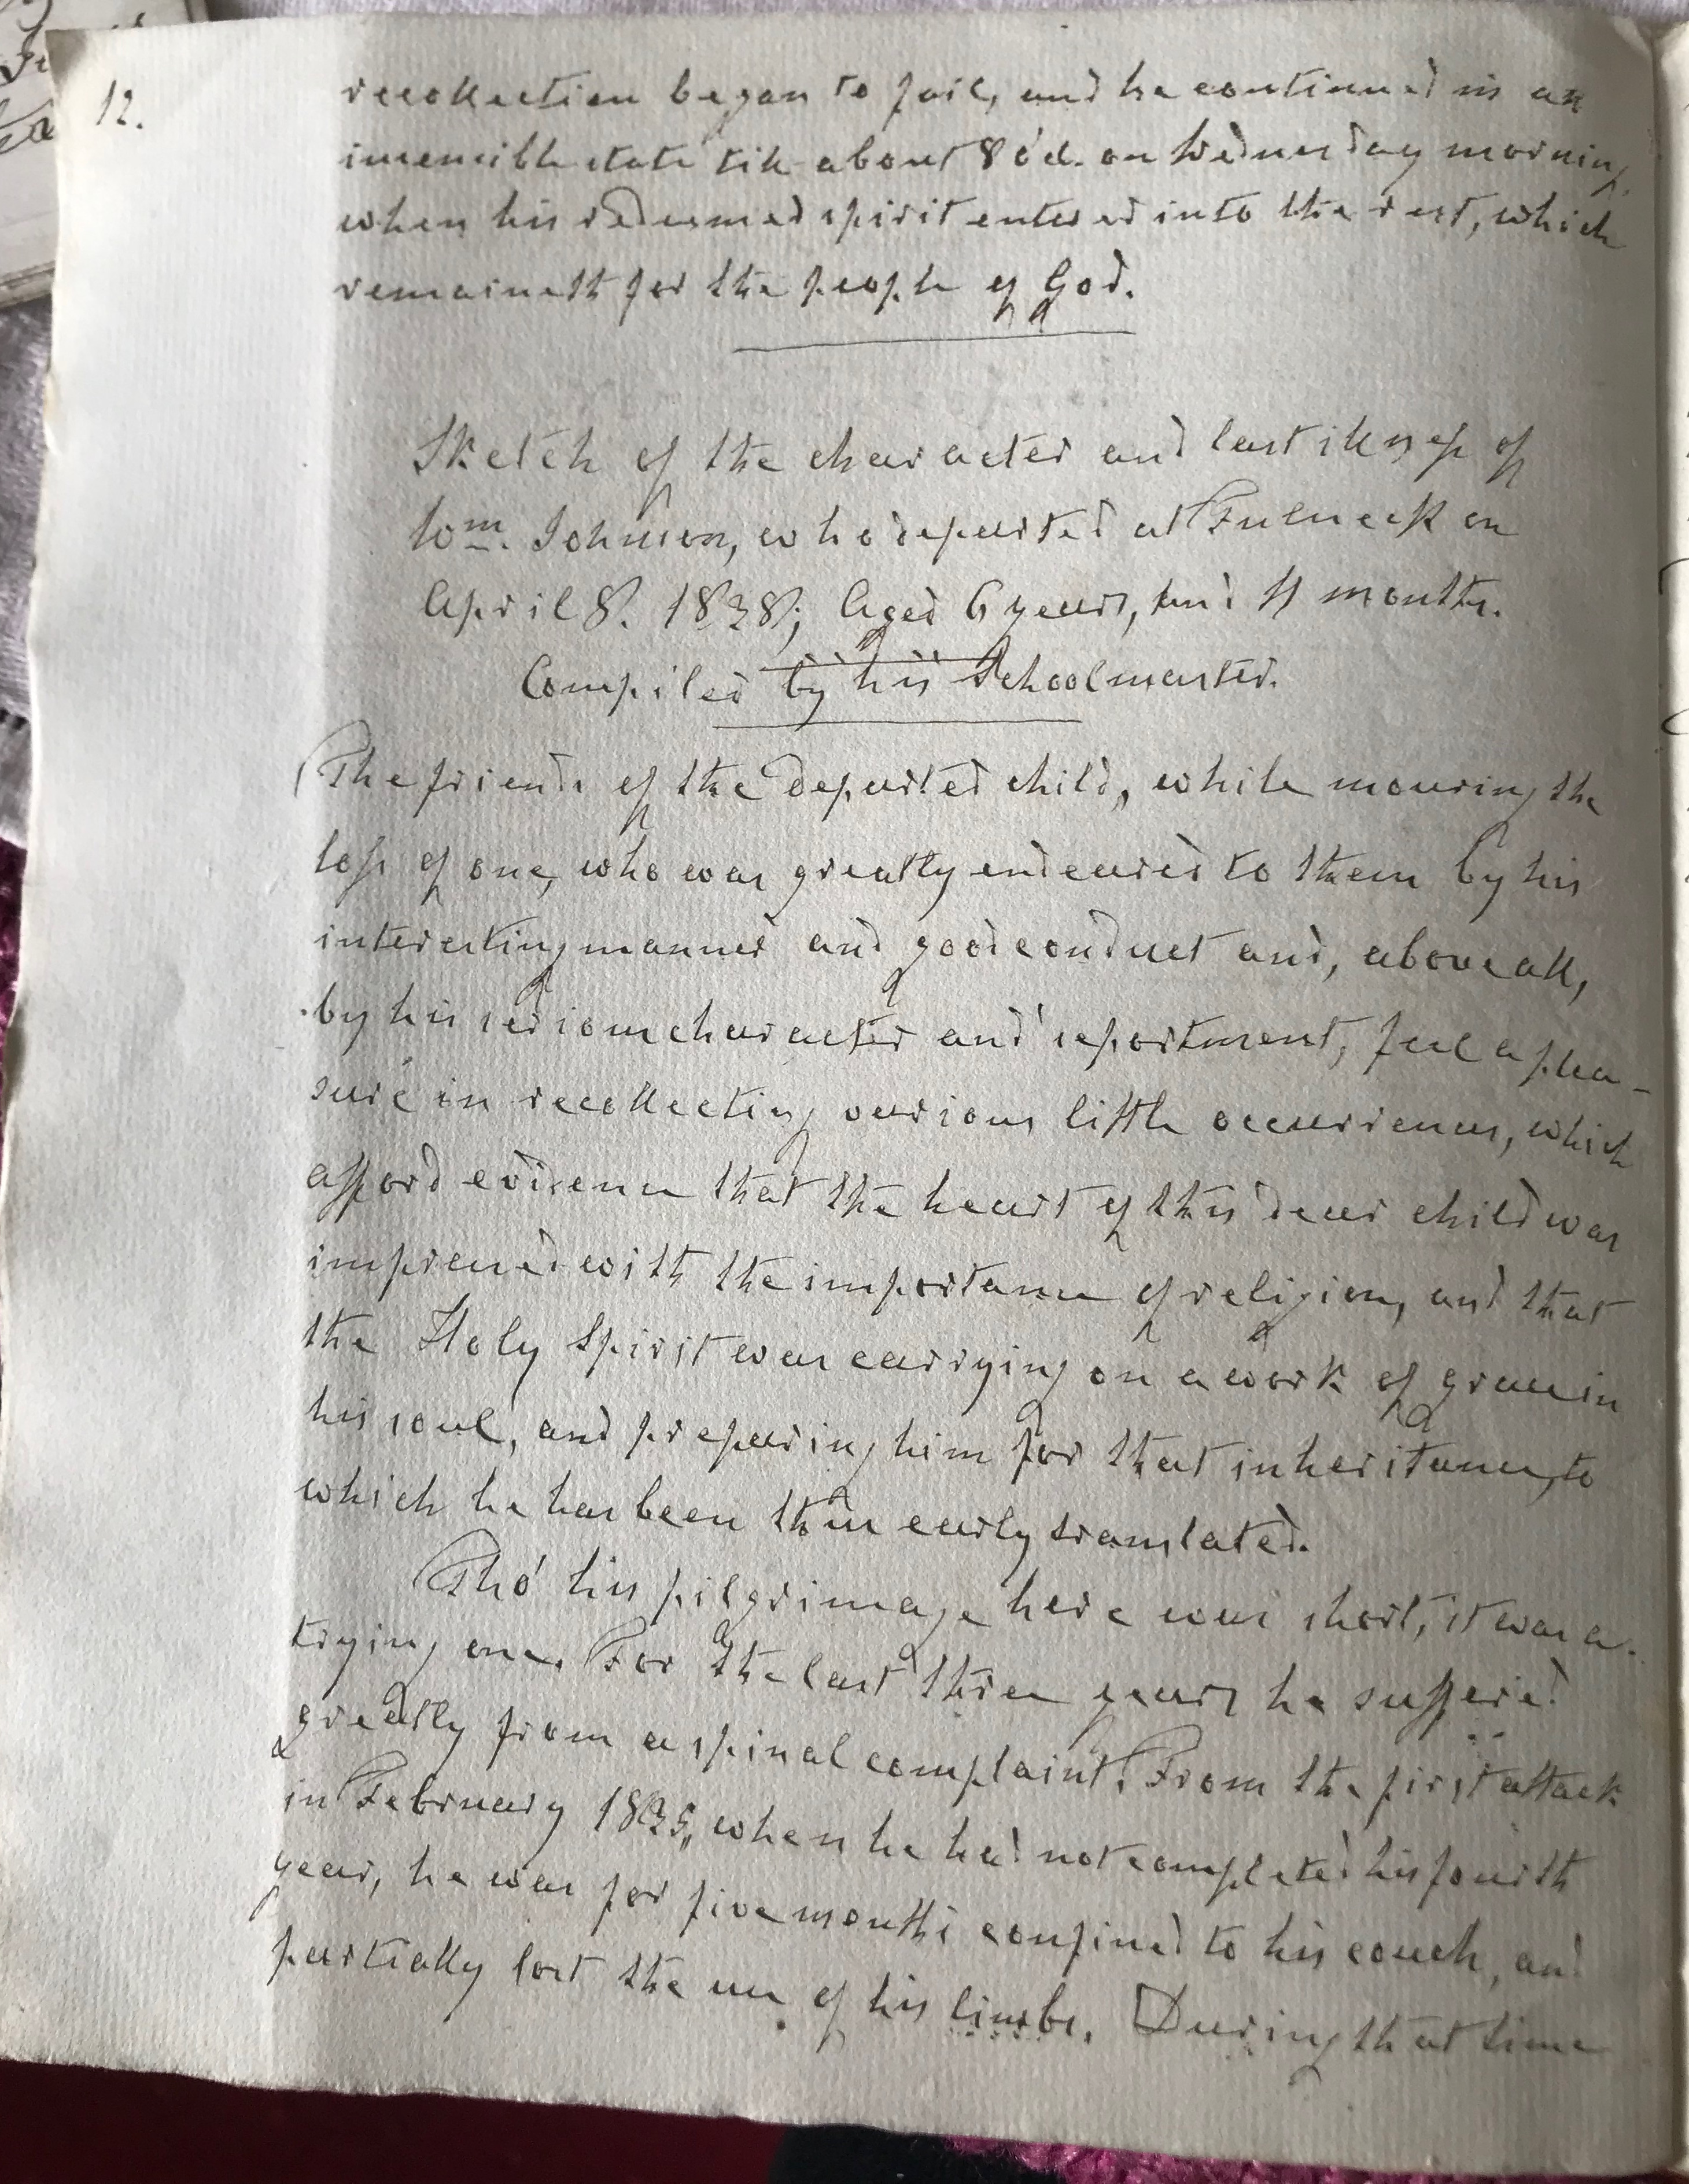 12.
recollection began to fail, and he continued in an
insensible state till about 8 o'cl. on Wednesday morning,
when his redeemed spirit entered into the rest, which
remaineth for the people of God.
Sketch of the character and last illness of
Wm. Johnson, who departed at Fulneck on
April 8. 1838; Aged 6 years, and 11 months.
Compiled by his Schoolmaster.
The friends of the departed child, while mouring the
loss of one, who was greatly endeared to them by his
interesting manner and good conduct and, above all,
by his serious character and deportment, feel a plea-
sure in recollecting various little occurrences, which
afford evidence that the heart of this dear child was
impressed with the importance of religion, and that
the Holy Spirit was carrying on a work of grace in
his soul, and preparing him for that inheritance, to
which he has been thus early translated.
Tho' his pilgrimage here was short, it was a
trying one. For the last three years he suffered
greatly from a spinal complaint. From the first attack
in February 1835, when he had not completed his fourth
year, he was for five months confined to his couch, and
partially lost the use of his limbs. During that time